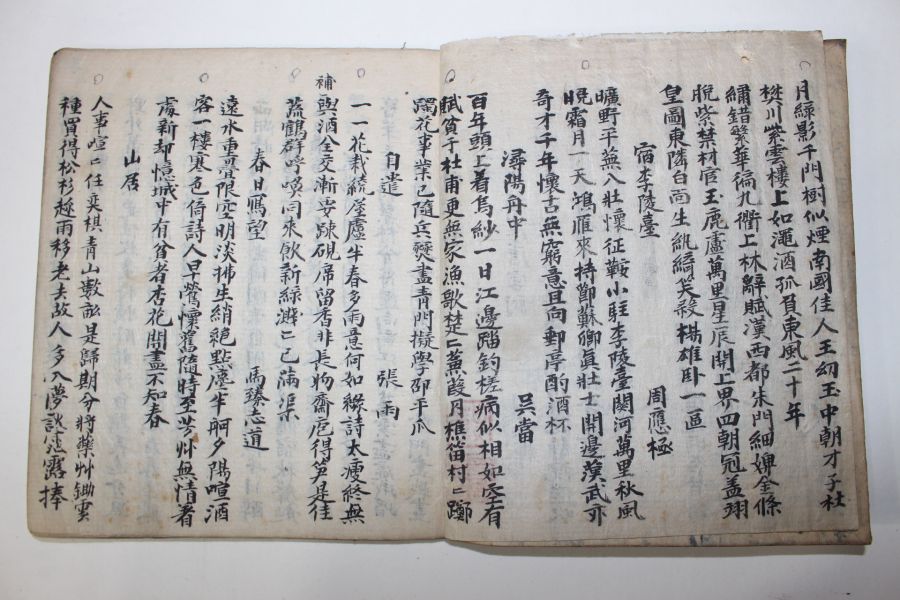 月綠影千門樹似煙南國佳人王幼玉中朝才子杜
樊川紫雲樓上如澠酒孤負東風二十年
繡錯繁華徧九衢上林辭賦漢西都朱門細婢金條
脫紫禁材官玉鹿盧萬里星辰開上界四朝冠盖翊
皇圖東隣白面生紈綺笑殺楊雄臥一區
宿李陵臺
周應極
曠野平蕪入壯懷征鞍小駐李陵臺関河萬里秋風
晚霜月一天鴻雁來持節蘇卿真壯士開邊漢武亦
奇才千年懷古無窮意且向郵亭酌酒杯
潯陽舟中
吳當
百年頭上着烏紗一日江邊踏釣槎病似相如家有
賦貧于杜甫更無家漁歌楚二蒹葭月樵笛村二躑
躅花事業已隨兵燹盡青門擬學邵平瓜
自遣
張雨
一一花栽繞屋廬半春多雨意何如綠詩太瘦終無
補
與酒全交漸要踈硯席留香非長物齋庖得笋是佳
蔬鶴群呼喚同來飲新綠潀二已滿渠
春日寫望
馬臻志道
遠水重疊限空明淡拂生綃絕點塵半舸夕陽喧酒
客一樓寒色倚詩人早鶯懷舊隨時至芳艸無情著
處新却憶城中有貧者杏花開盡不知春
山居
人事喧二任奕棋青山數畝是歸期分將藥艸鋤雲
種買得松杉趂雨移老去故人多入夢